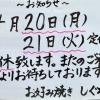 ～お知らせ～
月20日(月)
21日(火)定
休致します。またのご
よりお待ちしております
お好み焼き しぐ